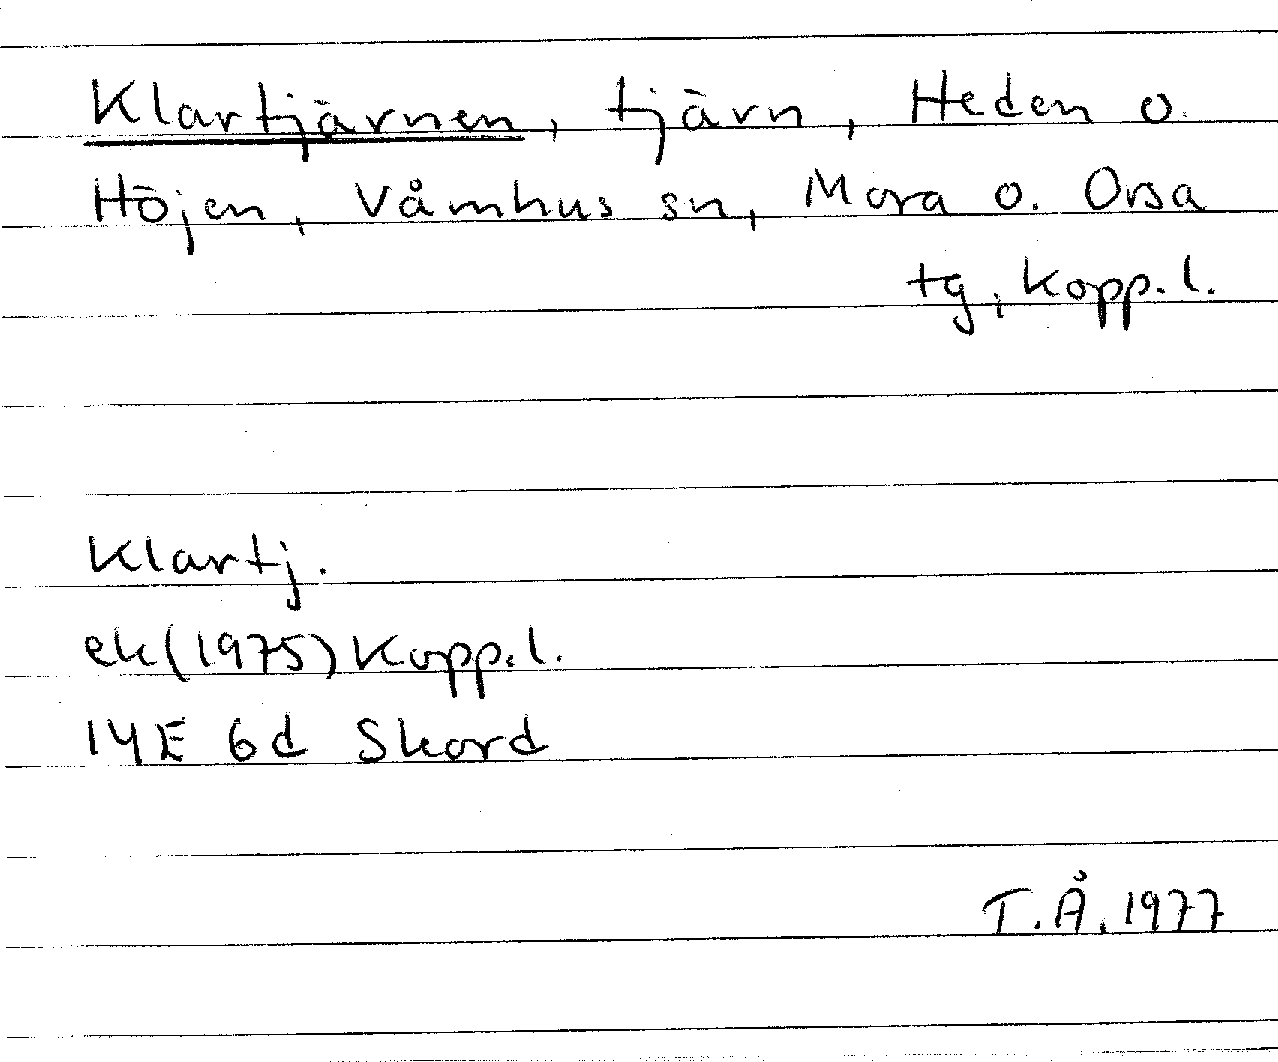 Klartjärnen, tjärn, Heden o.
Höjen, Våmhus sn, Mora o. Orsa
tg, Kopp.l.
Klartj.
ek(1975)Kopp.l.
14E 6d Skord
T.Å.1977